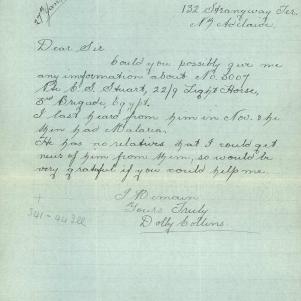 27th Jan
132 Strangway Ter.
Nth Adelaide.
Dear Sir
Could you possibly give me
any information about No. 3007
Pte E S Stuart, 22/9 Light Horse,
3rd Brigade, Egypt.
I last heard from him in Nov. & he
then had Malaria.
He has no relatives that I could get
news of him from them, so would be
very grateful if you could help me.
I Remain
Yours Truly
Dolly Collins.